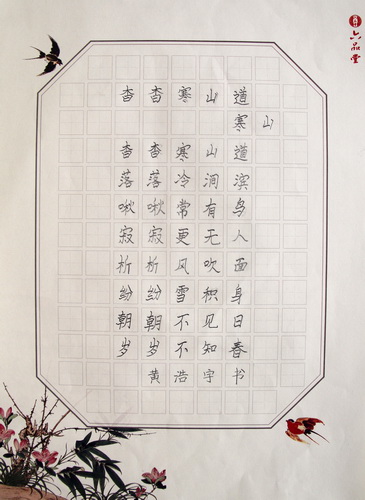 杳杳寒山道
寒山
杳杳寒山道
落落冷涧滨
啾啾常有鸟
寂寂更无人
析析风吹面
纷纷雪积身
朝朝不见日
岁岁不知春
黄浩宇书
六品堂